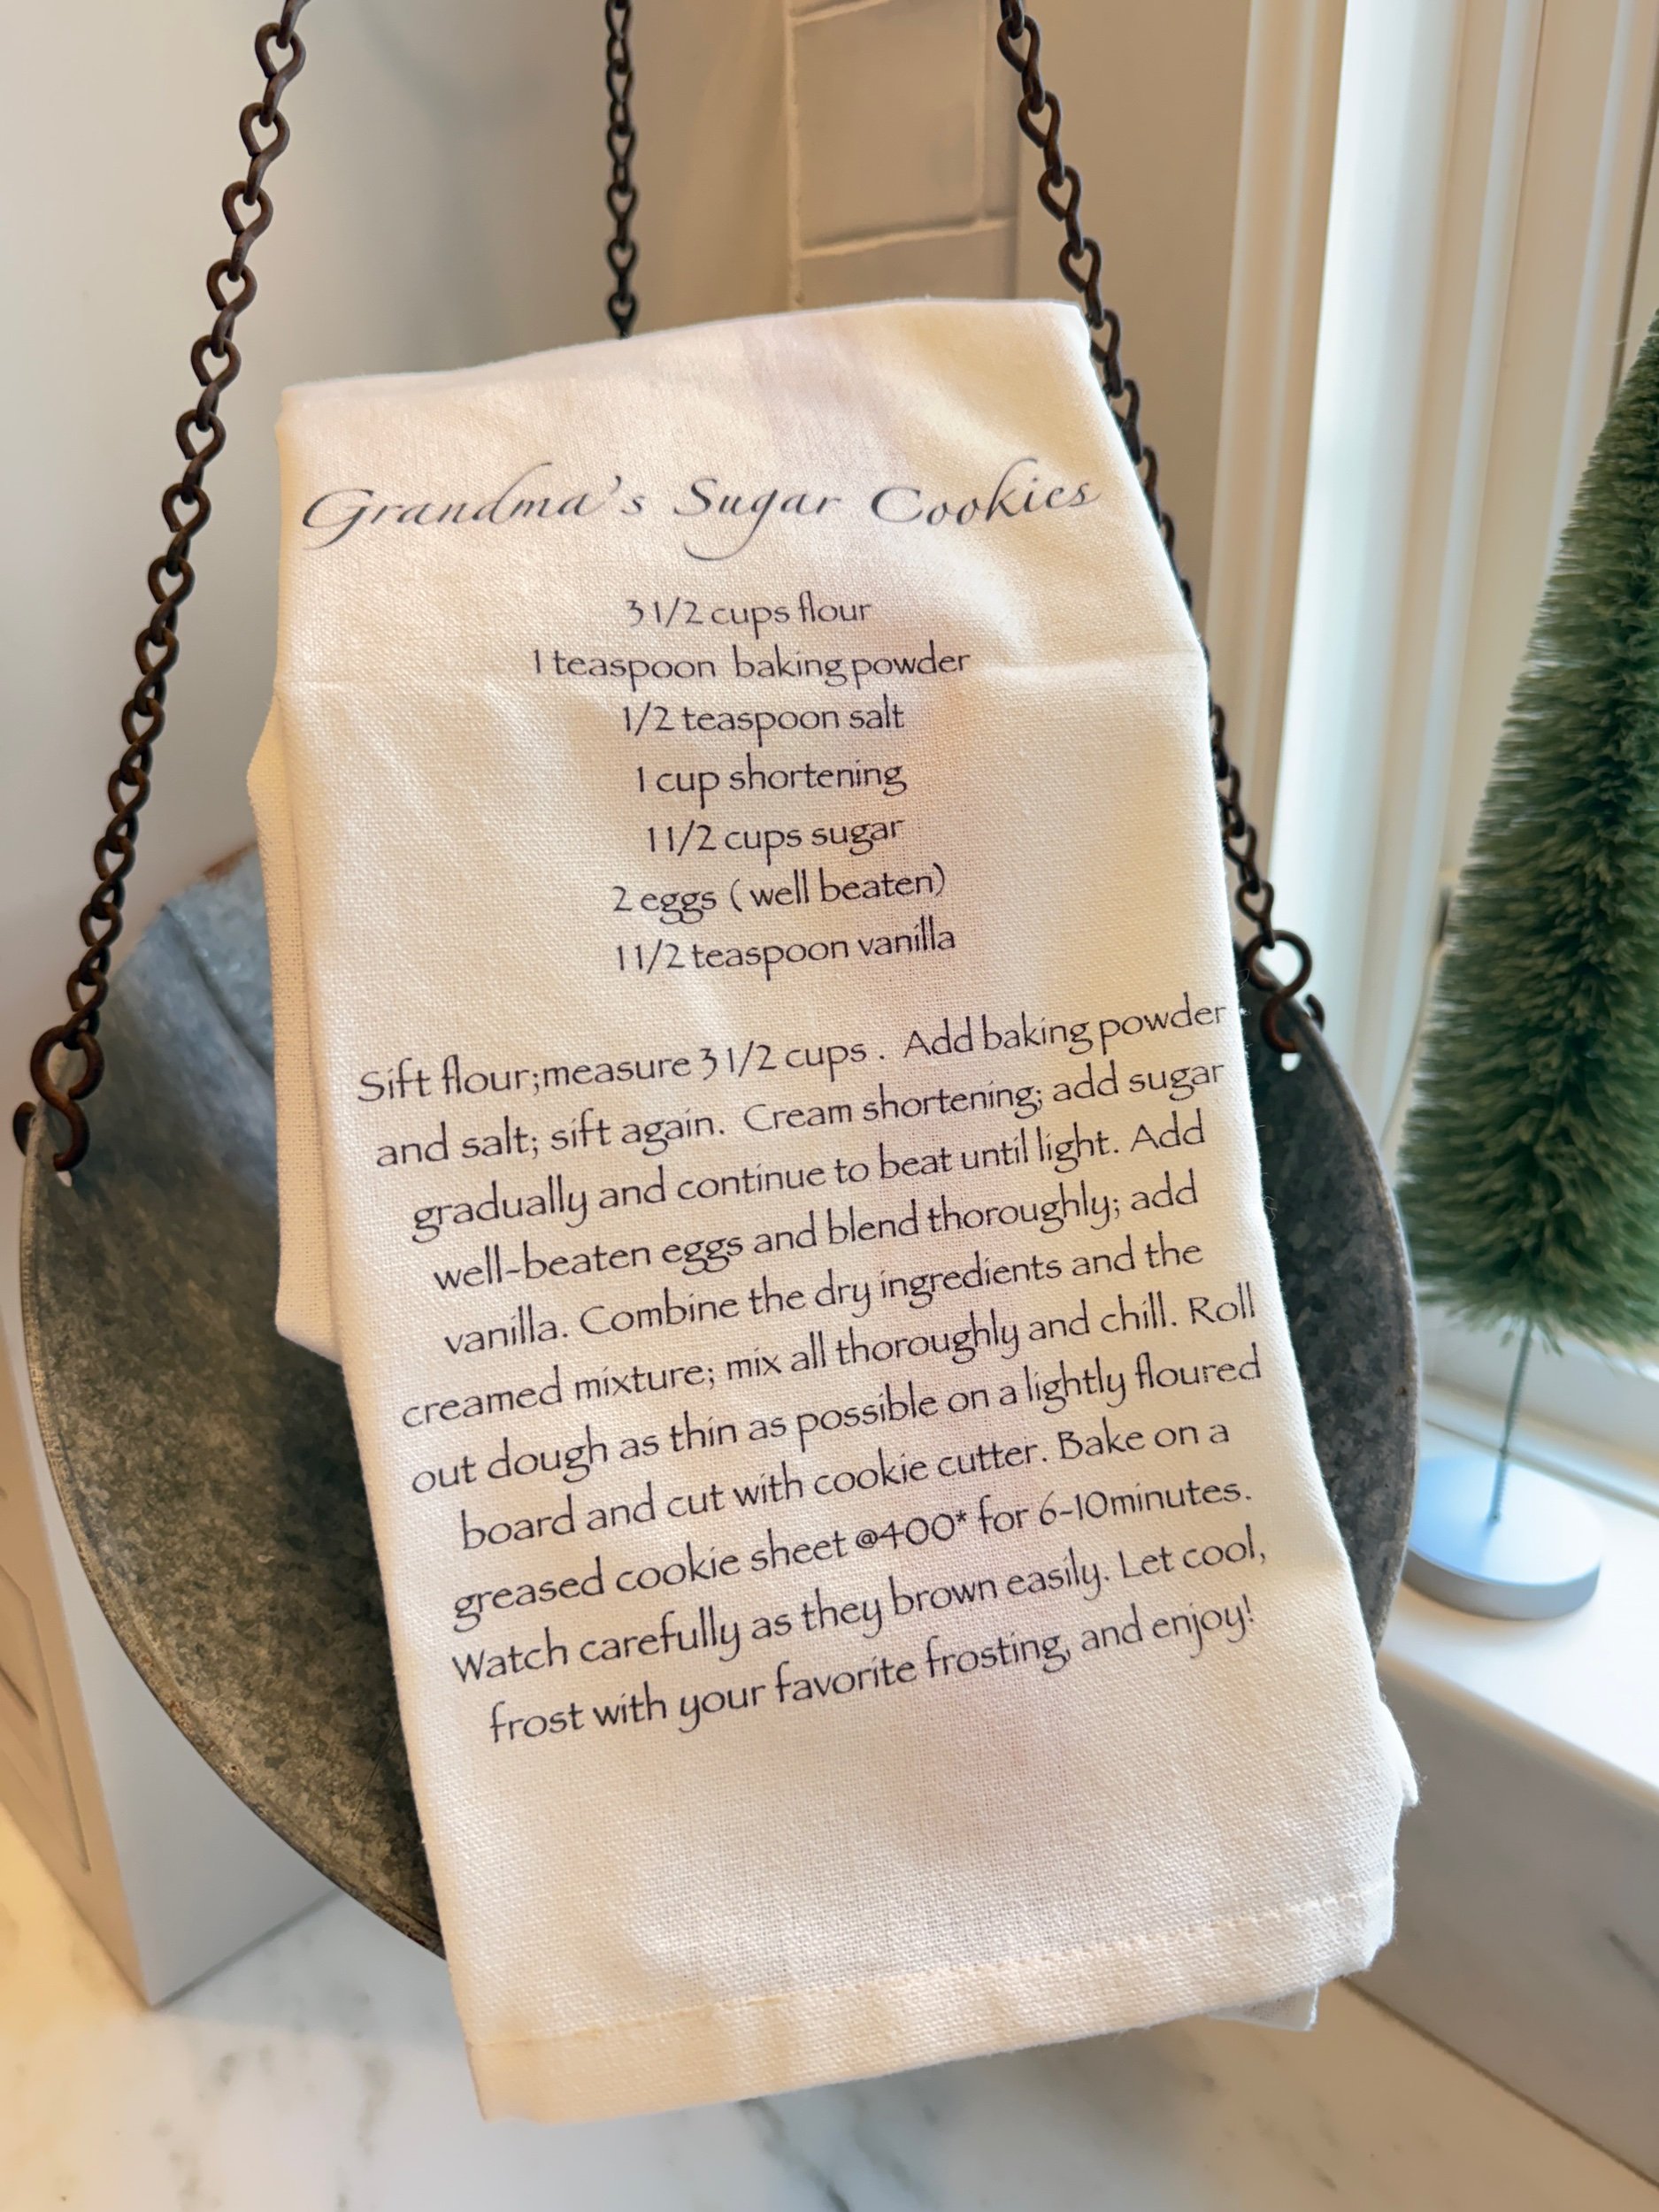 Grandma's Sugar Cookies
3 1/2 cups flour
1 teaspoon baking powder
1/2 teaspoon salt
1 cup shortening
1 1/2 cups sugar
2 eggs ( well beaten)
1 1/2 teaspoon vanilla
Sift flour;measure 3 1/2 cups . Add baking powder
and salt; sift again. Cream shortening; add sugar
gradually and continue to beat until light. Add
well-beaten eggs and blend thoroughly; add
vanilla. Combine the dry ingredients and the
creamed mixture; mix all thoroughly and chill. Roll
out dough as thin as possible on a lightly floured
board and cut with cookie cutter. Bake on a
greased cookie sheet @400* for 6-10minutes.
Watch carefully as they brown easily. Let cool,
frost with your favorite frosting, and enjoy!